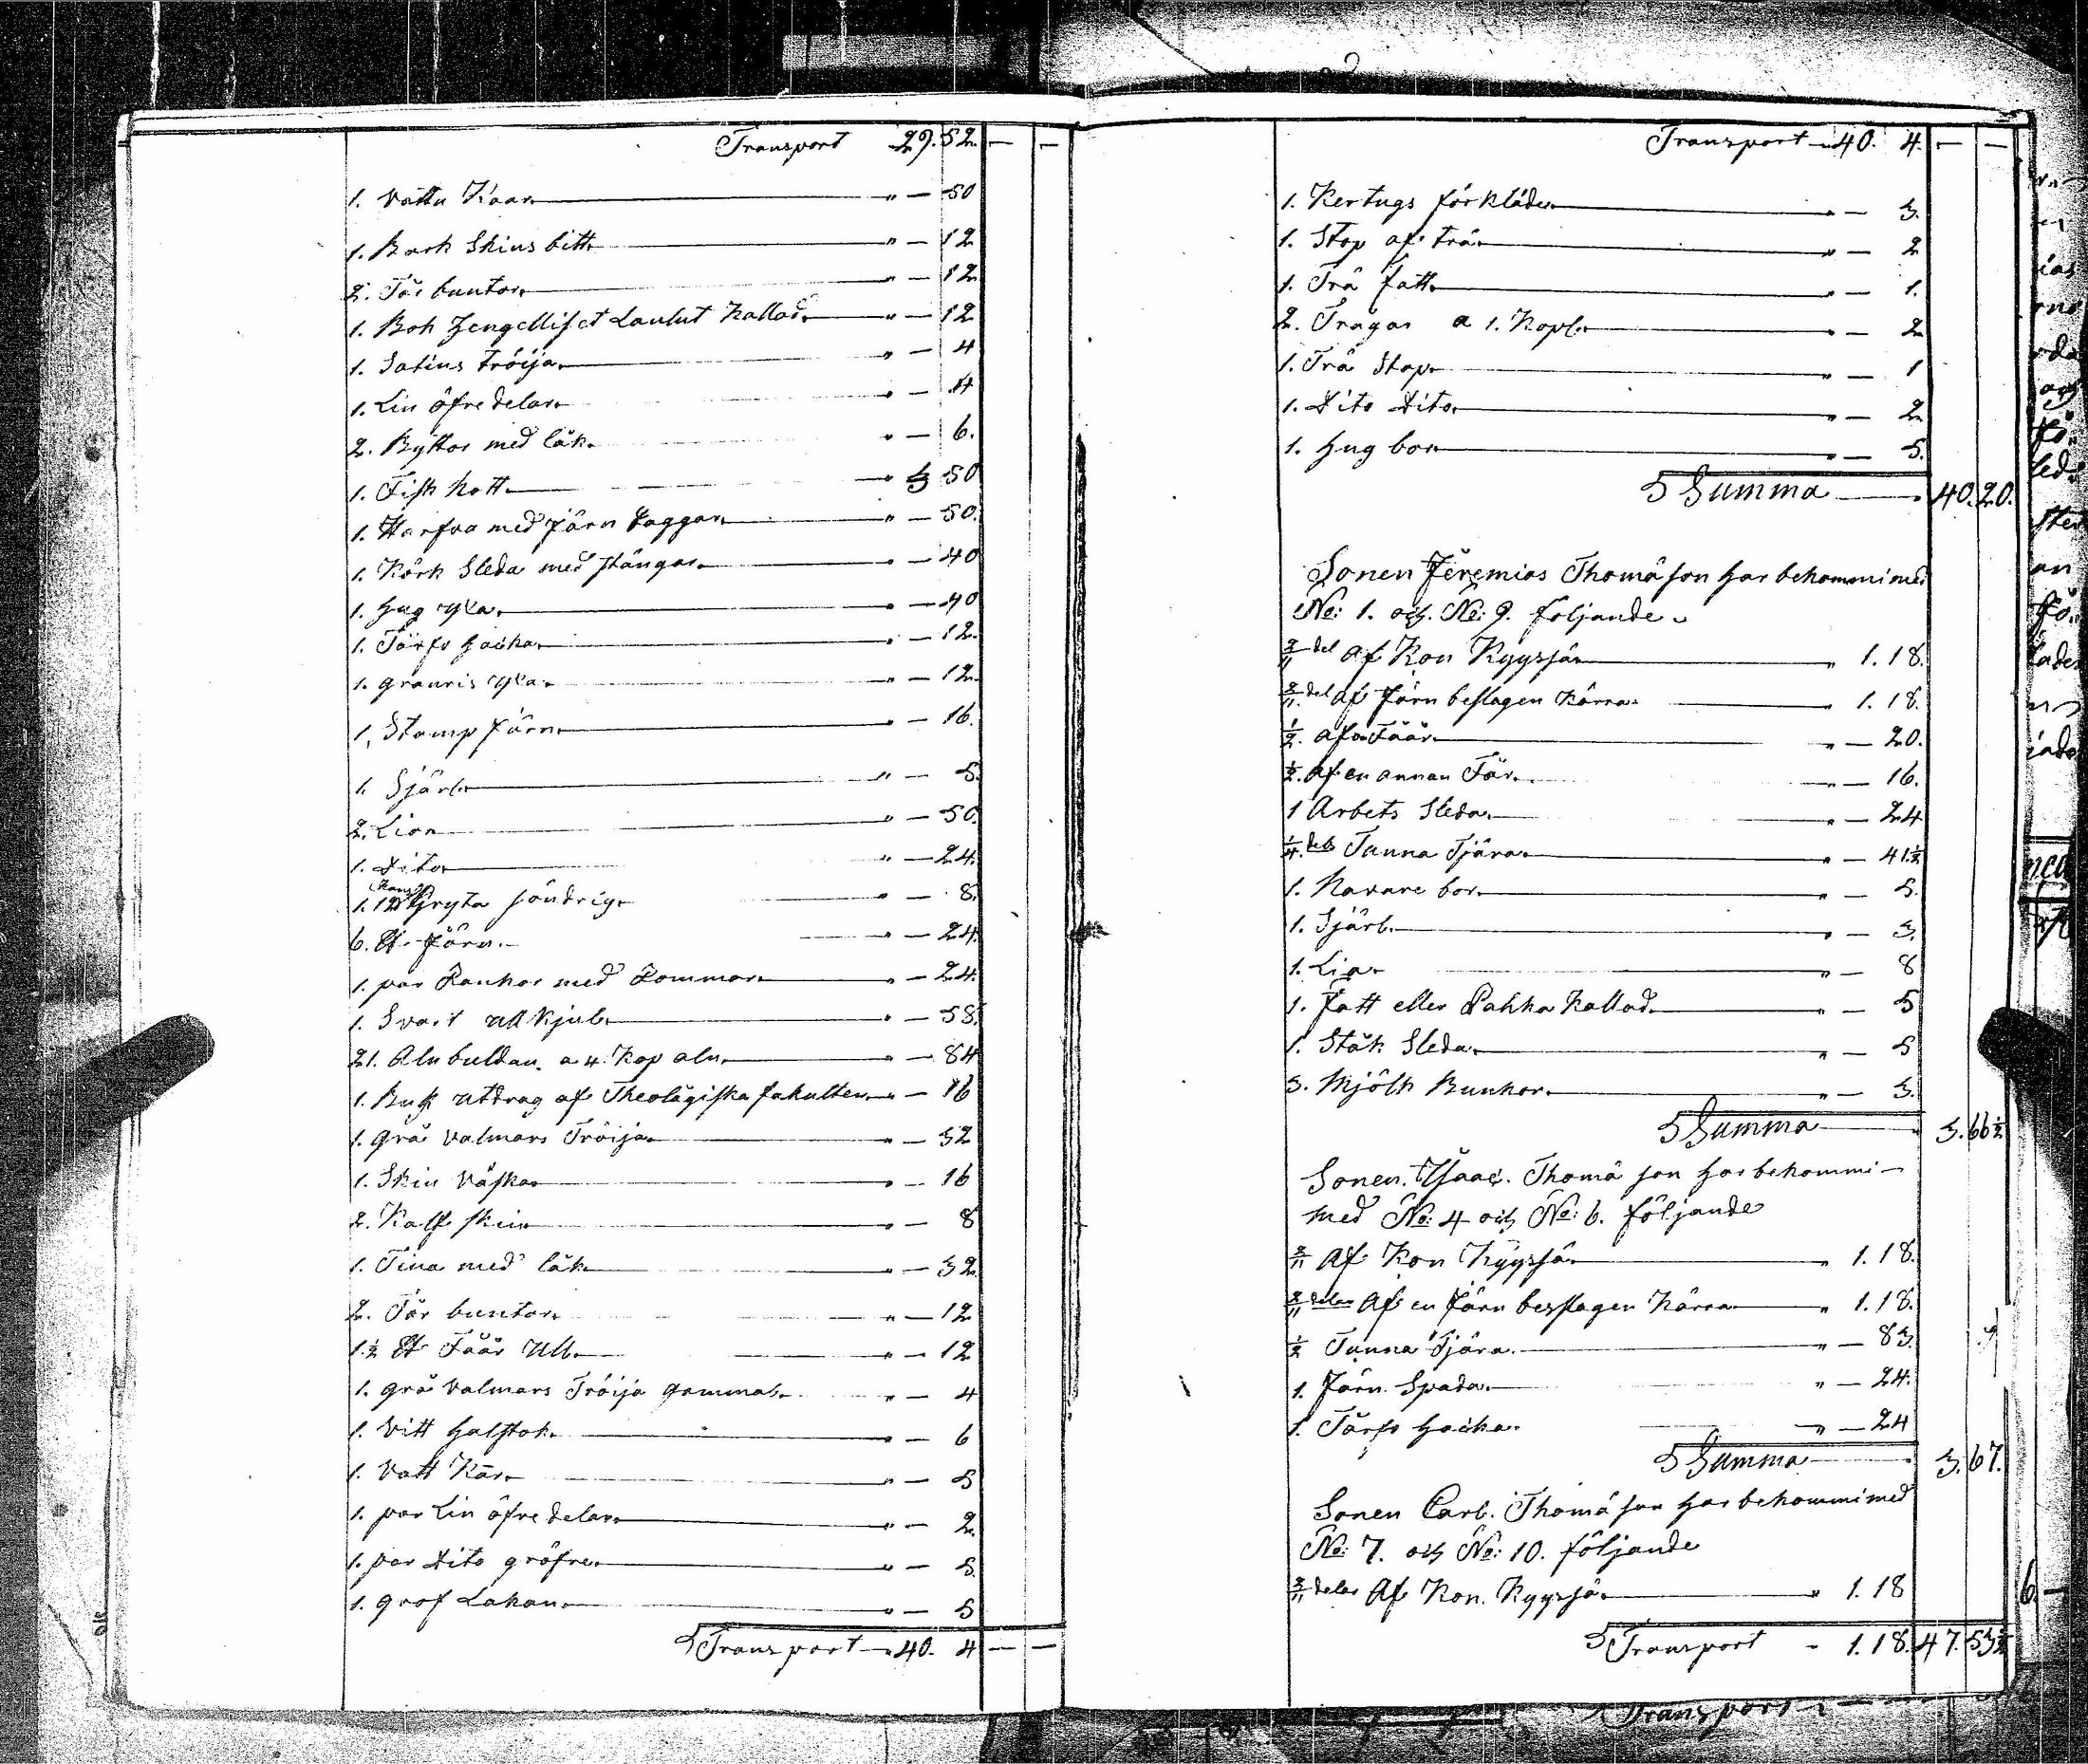 Transport 29. 52. — —
1. Vattu Kaar " — 50
1. Bark Skins bitt " — 12
2. Tår buntor " — 12
1. Bok Laulut Kallad " — 12
1. Satins tröija " — 4
1. Lin öfredelar " — 4
2. Byttor med låk " — 6.
1. Fisk kott " 3 50
1. Harfva med järn taggar " — 50.
1. Körk Sleda med stångar " — 40
1. hug yxa " — 40
1. Tårfs hacka " — 12.
1. granris yxa " — 12.
1. Stamp järn " — 16.
1. Sjärl " — 5.
2. Lior " — 50.
1. dito " — 24.
1. 12 Kans gryta söndrig " — 8.
6. ℔ Järn " — 24.
1. par Rankor med Lommar " — 24.
1. Svart ull kjol " — 58.
21. Aln buldan a 4. Kop aln " — 84
1. Buk utdrag af Theologiska fakulten " — 16
1. grå Valmars Tröija " — 32
1. Skin Väska " — 16
2. Kalf skin " — 8
1. Tina med låk " — 32
2. Tår buntar " — 12
1½ ℔ Fåår Ull " — 12
1. grå Valmars Tröija gammal " — 4
1. Vitt halstok " — 6
1. Vatt Kar " — 5
1. par Lin öfredelar " — 2
1. par dito gröfre " — 5
1. grof Lakan " — 5
Transport 40. 4 — —
Transport 40. 4. — —
1. Kertugs förkläde " — 3.
1. Stop af trä " — 2
1. Trä fatt " — 1.
2. Trågar a 1. Kopl " — 2
1. Trä Stop " — 1
1. dito dito " — 2
1. hug bor " — 5.
Summa 40. 20.
Sonen Jeremias Thomä son har bekommi med
No: 1. och No: 9. följande
2/11 del af Kon Kyysjä " 1. 18.
2/11 del af Järn beslagen Kärra " 1. 18.
½. af Fåår " — 20.
½. af en annan Får " — 16.
1 Arbets Sleda " — 24
¼ dels Tunna Tjära " — 41½
1. Navare bor " — 5.
1. Sjärl " — 3.
1. Lia " — 8
1. Fatt eller Pahka Kallad " — 5
1. Ståk Sleda " — 5
3. Mjölk Bunkor " — 3.
Summa 3. 66½
Sonen. Isaac. Thomä son har bekommi
med No: 4 och No: 6. följande
2/11 Af Kon Kyysjä " 1. 18.
2/11 delar Af en Järn beslagen Kärra " 1. 18.
½ Tunna Tjära " — 83.
1. Järn Spada " — 24.
1. Tårfs hacka " — 24
Summa 3. 67.
Sonen Carl. Thomä son har bekommi med
No: 7. och No: 10. följande
2/11 delar Af Kon. Kyysjä " 1. 18
Transport 1. 18. 47. 53½
Transport